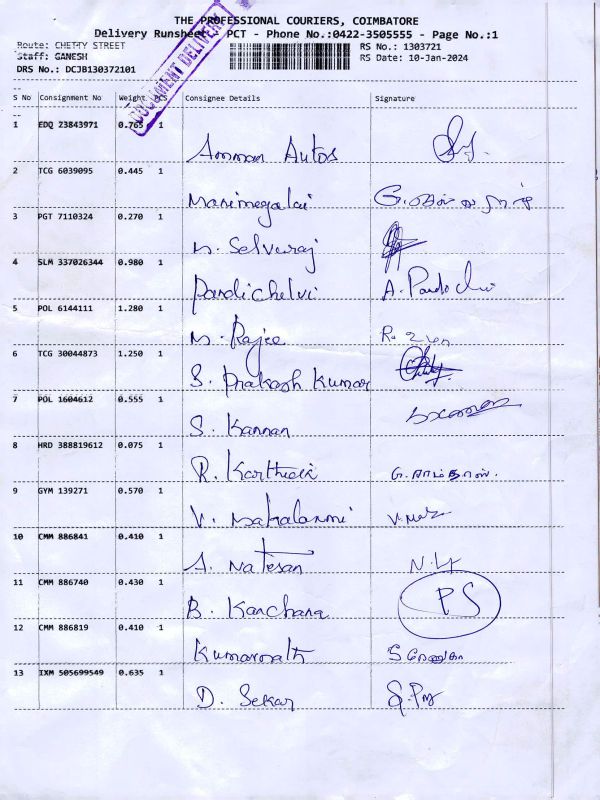 THE PROFESSIONAL COURIERS, COIMBATORE
Delivery Runsheet - PCT - Phone No.:0422-3505555 - Page No.:1
Route: CHETTY STREET RS No.: 1303721
Staff: GANESH RS Date: 10-Jan-2024
DRS No.: DCJB130372101
DOCUMENT DELIVERY
S No Consignment No Weight PCS Consignee Details Signature
1 EDQ 23843971 0.765 1
Amman Autos
2 TCG 6039095 0.445 1
Manimegalai
3 PGT 7110324 0.270 1
N. Selvaraj
4 SLM 337026344 0.980 1
Pandichelvi A. Pandichi
5 POL 6144111 1.280 1
N. Rajee
6 TCG 30044873 1.250 1
S. Prakash Kumar
7 POL 1604612 0.555 1
S. Kannan
8 HRD 388819612 0.075 1
R. Karthick
9 GYM 139271 0.570 1
V. Mahalaxmi
10 CMM 886841 0.410 1
A. Natesan
11 CMM 886740 0.430 1
B. Kanchana PS
12 CMM 886819 0.410 1
Kumarnath
13 IXM 505699549 0.635 1
D. Sekar